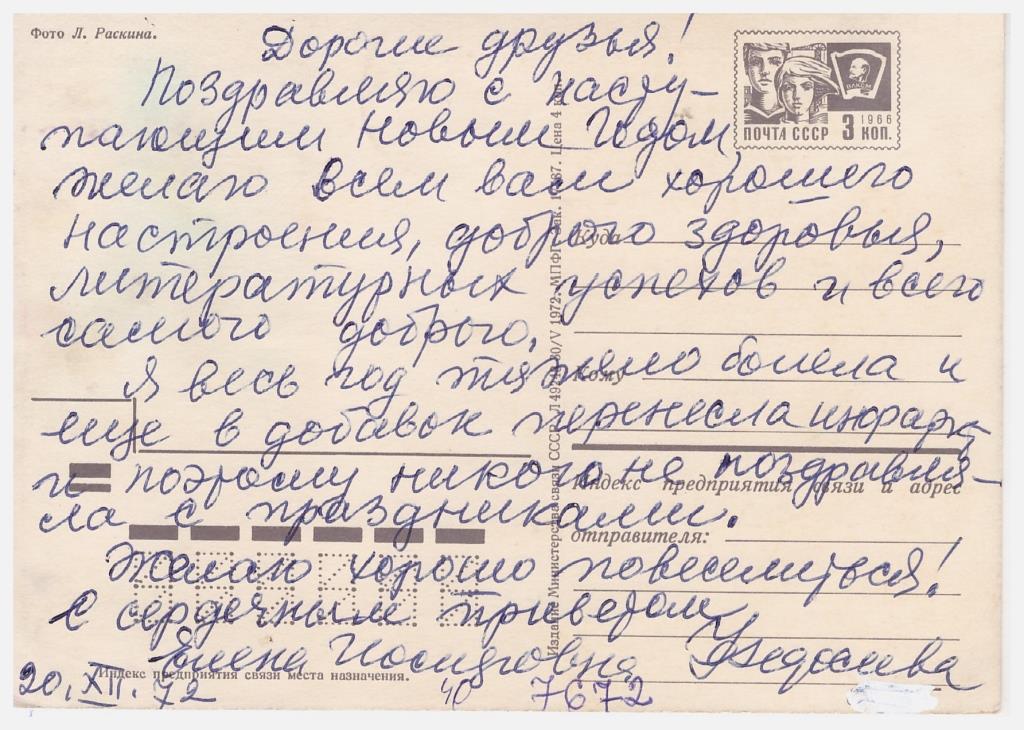 Фото Л. Раскина.
Дорогие друзья!
Поздравляю с насту-
пающим Новым Годом,
желаю всем вам хорошего
настроения, доброго здоровья,
литературных успехов и всего
самого доброго.
Я весь год тяжело болела и
еще в добавок перенесла инфаркт
и поэтому никого не поздравля-
ла с праздниками.
Желаю хорошо повеселиться!
С сердечным приветом.
Елена
20.XII.72
40
7672
ПОЧТА СССР 3 КОП.
1966
ВЛКСМ
Куда
Кому
Индекс предприятия связи и адрес
отправителя:
Индекс предприятия связи места назначения.
Издание Министерства связи СССР. 1972. МПФГ. Цена 4 коп.